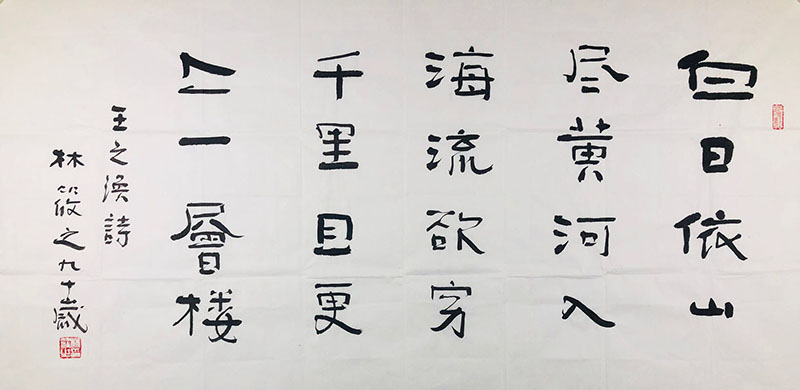 白日依山
尽黄河入
海流欲穷
千里目更
上一層楼
王之涣詩
林筱之九十歲